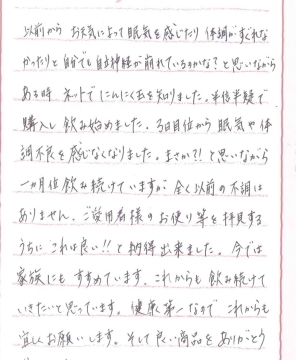 以前から お天気によって眠気を感じたり 体調がすぐれな
かったりと自分でも自律神経が崩れているのかな?と思いながら
ある時 ネットでにんにく玉を知りました。半信半疑で
購入し飲み始めました。3日目位から 眠気や体
調不良を感じなくなりました。まさか?!と思いながら
一ヶ月位飲み続けていますが 全く以前の不調は
ありません。ご愛用者様のお便り等を拝見する
うちに これは良い!!と納得出来ました。今では
家族にもすすめています。これからも飲み続けて
いきたいと思っています。健康第一なので これからも
宜しくお願いします。そして良い商品をありがとう